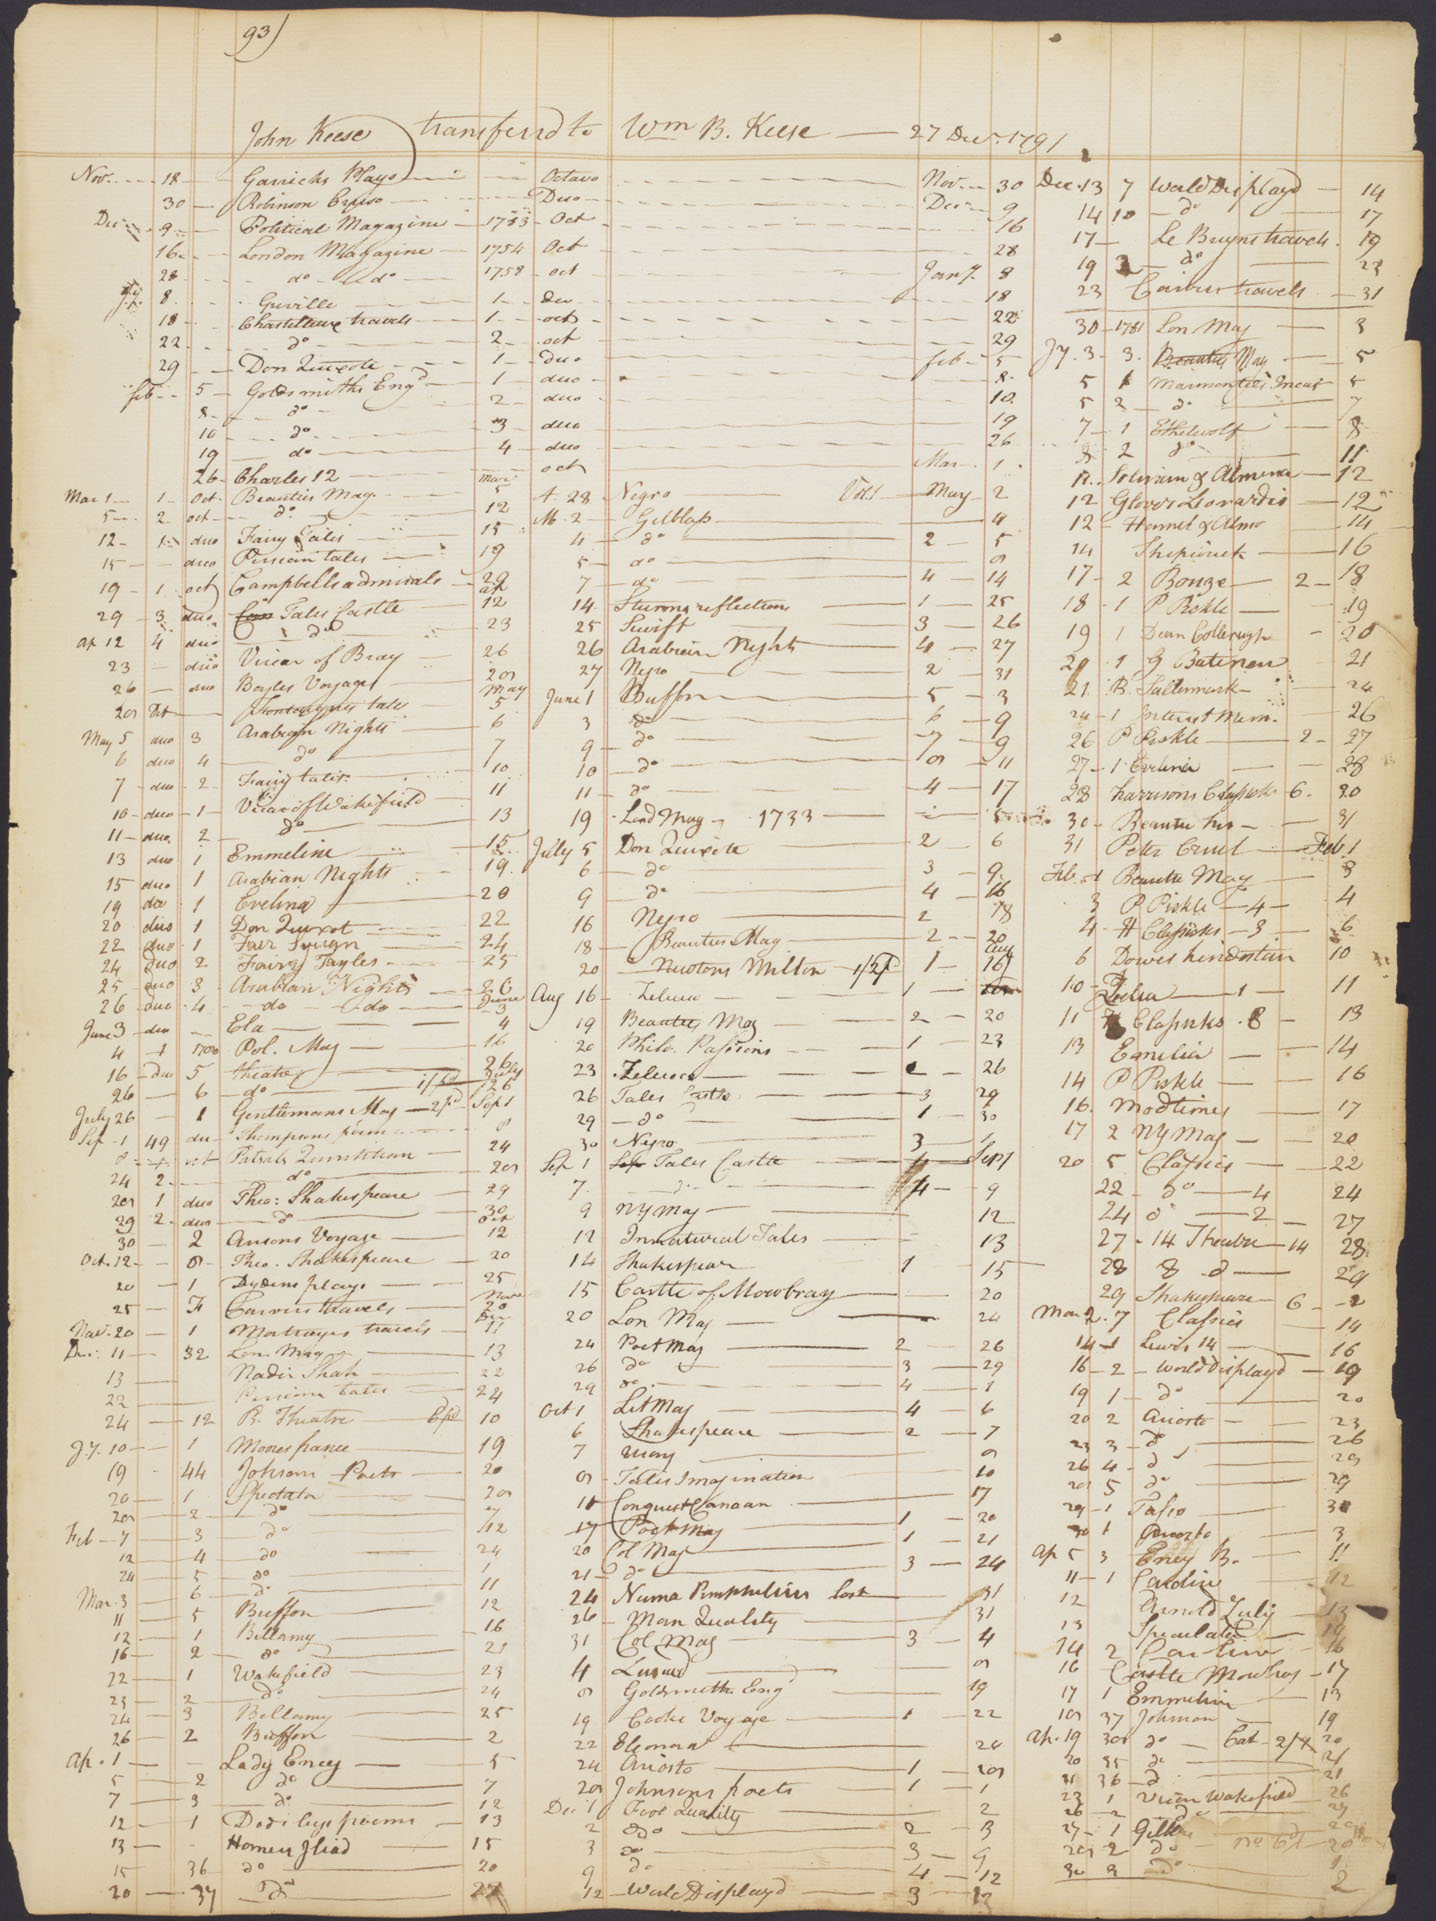 93)
John Keese transferrd to Wm B. Keese — 27 Decr. 1791
Nov. 18 Garricks Plays Octavo Nov 30
30 Robinson Cruso Duo Dec 9
Dec 9 Political Magazine 1783 Oct 16
16 London Magazine 1754 Oct 28
28 do do 1758 oct Jany. 8
8 Greville 1 duo 18
18 Chastelleux travels 1 oct 22
22 do 2 oct 29
29 Don Quixote 1 duo Feb 5
Feb 5 Goldsmiths Engd 1 duo 8
8 do 2 duo 10
10 do 3 duo 19
19 do 4 duo 26
26 Charles 12 oct Mar 1
Mar 1 1 Oct Beauties Mag. 5
5 2 oct do 12
12 1 duo Fairy Tales 15
15 duo Persian tales 19
19 1 oct Campbells admirals 29
29 3 duo Tales Castle ap 12
ap 12 4 duo do 23
23 duo Vicar of Bray 26
26 duo Boyles Voyages 28
28 Oct tale May 5
May 5 duo 3 Arabian Nights 6
6 duo 4 do 7
7 duo 2 Fairy tales 10
10 duo 1 Vicar of Wakefield 11
11 duo 2 do 13
13 duo 1 Emmeline 15
15 duo 1 Arabian Nights 19
19 duo 1 Evelina 20
20 duo 1 Don Quixot 22
22 duo 1 Fair 24
24 duo 2 Fairy Tayles 25
25 duo 3 Arabian Nights 26
26 duo 4 do do June 3
June 3 duo Ela 4
4 Pol. Mag 16
16 duo 5 theatre 26
26 6 do July 26
July 26 1 Gentlemans Mag 2/ pd Sep 1
Sep 1 49 duo Thompsons poems 8
8 oct Quintilian 24
24 2 do 28
28 1 duo Theo: Shakespeare 29
29 2 duo do 30
30 2 Ansons Voyage oct 12
Oct. 12 8 Theo. Shakespeare 20
20 1 Drydens plays 25
25 Carvers travels Nov 20
Nov. 20 1 travels Dec 11
Dec. 11 32 Lon. Mag 13
13 Nadir Shah 22
22 Persian tales 24
24 12 B. Theatre 10
J.y. 10 1 Moores france 19
19 44 Johsons Poets 20
20 1 Spectator 28
28 2 do 7
Feb 7 3 do 12
12 4 do 24
24 5 do 1
Mar. 3 6 do 11
11 5 Buffon 12
12 1 Bellamy 16
16 2 do 22
22 1 Wakefield 23
23 2 do 24
24 3 Bellamy 25
26 2 Buffon 2
Ap. 1 Lady Eney 5
5 2 do 7
7 3 do 12
12 1 Dodsleys poems 13
13 Homers Iliad 15
15 36 do 20
20 37 do 27
A 28 Negro Vol 1 May 2
M 2 Gilblass 4
4 do 2 5
5 do 8
7 do 4 14
14 Sturms reflections 1 25
25 Swift 3 26
26 Arabian Nights 4 27
27 Negro 2 31
June 1 Buffon 5 3
3 do 6 9
9 do 7 9
10 do 8 11
11 do 4 17
19 Lond Mag 1733
July 5 Don Quixote 2 6
6 do 3 9
9 do 4 16
16 Negro 2 18
18 Beauties Mag 2 20
20 Newtons Milton 1/2 pd 1 Aug 16
Aug 16 Zeluco 1
19 Beauties Mag 2 20
20 Philo. Passions 1 23
23 Zeluco 26
26 Tales Castle 3 29
29 do 1 30
30 Negro 3
Sep 1 Tales Castle 4 Sep 7
7 do 4 9
9 NY Mag 12
12 Innatural Tales 13
14 Shakespear 1 15
15 Castle of Mowbray 20
20 Lon Mag 24
24 Poet Mag 2 26
26 do 3 29
29 do 4 1
Oct 1 Lit Mag 4 6
6 Shakespeare 2 7
7 8
8 Tales Imagination 10
10 Conquest Canaan 17
17 Poet Mag 1 20
20 Col Mag 1 21
21 do 3 24
24 Numa Pomphilius lost 31
26 Man Quality 31
31 Col Mag 3 4
4 8
8 Goldsmiths Eng 19
19 Cooks Voyage 1 22
22 Elenora 24
24 Ariosto 1 28
28 Johnsons poets 1 1
Dec 1 Fool Quality 2
2 do 2 3
3 do 3 9
9 do 4 12
12 World Displayd 3 13
Dec. 13 7 World Displayd 14
14 10 do 17
17 Le Bruyns travels 19
19 3 do 23
23 Carver travels 31
30 1781 Lon Mag 3
Jy. 3 3 Beauties Mag 5
5 1 Marmontels Incas 5
5 2 do 7
7 1 Ethelwolf 8
8 2 do 11
11 Soliman & Almena 12
12 Glover Leonardis 12
12 Hermit & Almo 14
14 16
17 2 Bouge 2 18
18 1 P Pickle 19
19 1 Dean Collerugh 20
20 1 G Bateman 21
21 24
24 1 Mem. 26
26 P Pickle 2 27
27 1 Evelina 28
28 harrisons Classicks 6 30
30 Beauties 31
31 Peter Cruel Feb. 1
Feb. 1 Beauties Mag 3
3 P Pickle 4 4
4 H Classicks 3 6
6 Dowes hindostan 10
10 Delia 1 11
11 Classicks 8 13
13 Emelia 14
14 P Pickle 16
16 Modtimes 17
17 2 NY Mag 20
20 5 Classics 22
22 do 4 24
24 do 2 27
27 14 Theatre 14 28
28 8 do 29
29 Shakespeare 6 2
Mar 2 7 Classics 14
14 1 Lewis 14 16
16 2 World Displayd 19
19 1 do 20
20 2 Ariosto 23
23 3 do 26
26 4 do 28
28 5 do 29
29 1 Tasso 30
30 1 Ariosto 3
Ap 5 3 Eney B. 11
11 1 12
12 Arnold Zulig 13
13 Speculator 14
14 2 16
16 Castle Mowbray 17
17 1 Emmeline 18
18 37 Johnson 19
Ap. 19 38 do Cat 2/ 20
20 35 do 21
21 36 do 21
23 1 Vicar Wakefield 26
26 2 do 27
27 1 Gilblas 28
28 2 do
30 3 do 2